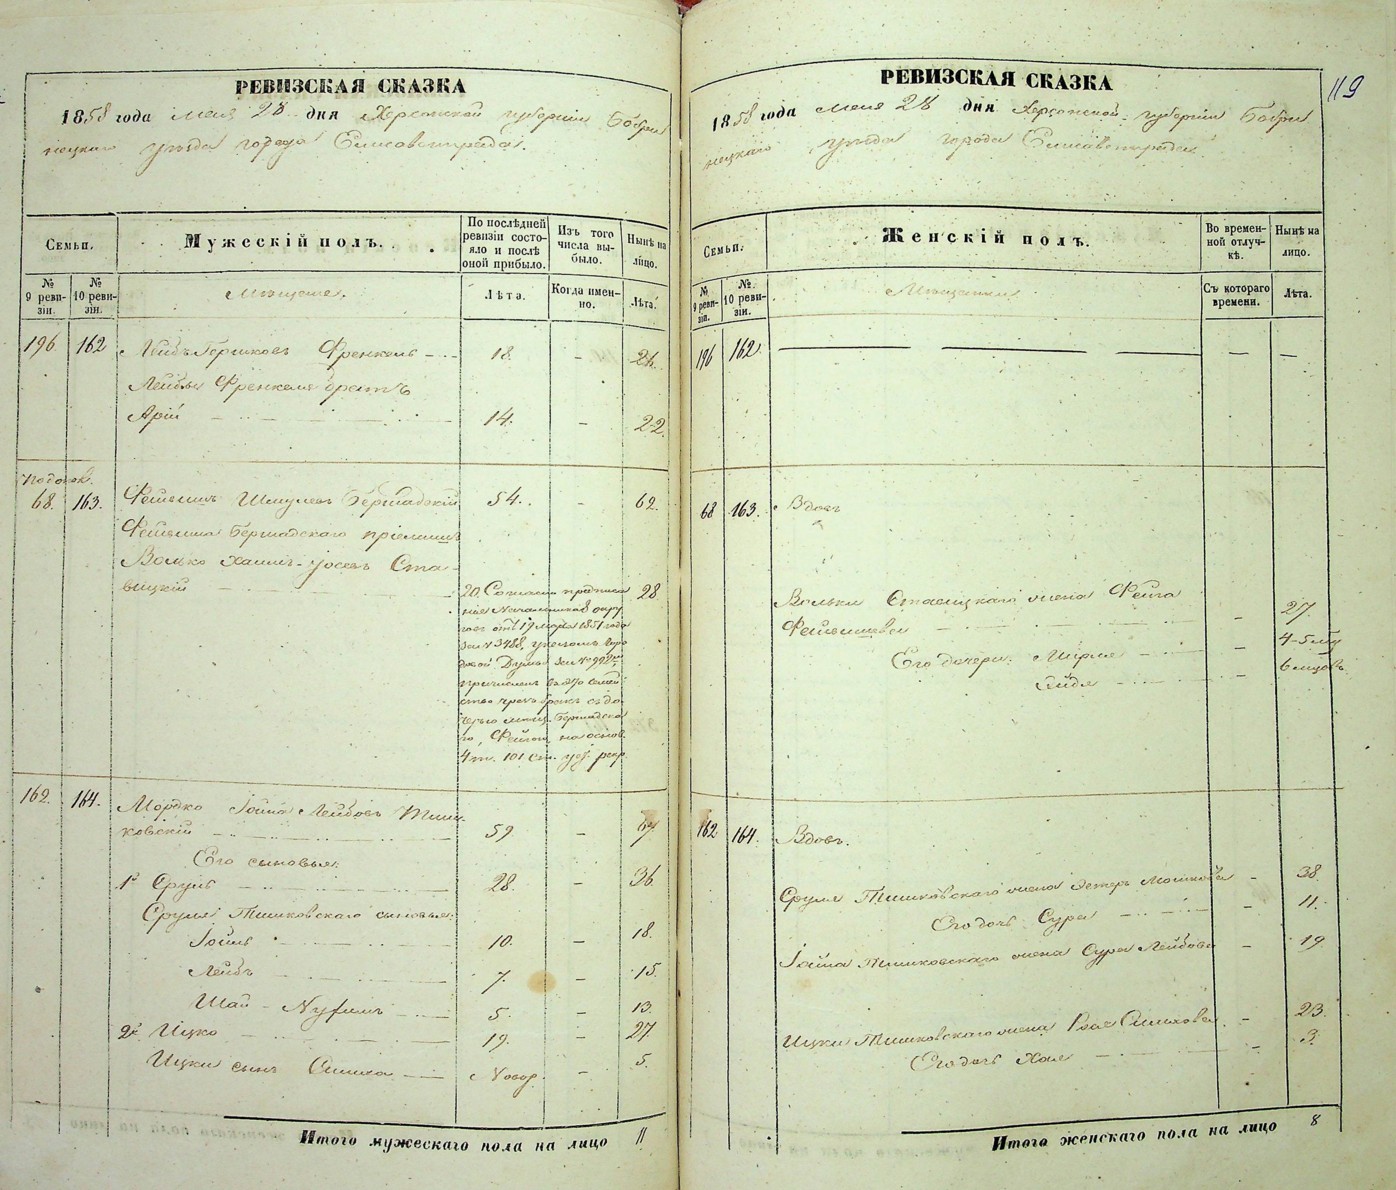 РЕВИЗСКАЯ СКАЗКА
1858 года мая 28 дня Херсонской губернии Бобри
нецкаго уѣзда города Елисаветграда.
Семьи.
Мужескій полъ.
По послѣдней ревизіи состо-яло и послѣ оной прибыло.
Изъ того числа вы-было.
Нынѣ на лицо.
№ 9 реви-зіи.
№ 10 реви-зіи.
Мѣщане.
Лѣта.
Когда имен-но.
Лѣта.
196 162 Лейбъ Гершковъ Френкель 18. – 26.
Лейбы Френкеля братъ
Арій 14. – 22.
68. 163. Шмулевъ Бершадскій 54. – 62.
Бершадскаго пріемышъ
Волько Хаимъ-Іосевъ Ста-
вицкій 20. Согласно предписа 28
нія Начальника окру
отъ 19 марта 1851 года
за № 3488, указомъ Горо
довой Думы за №
причисленъ въ его семей
ство чрезъ бракъ съ до
черью мѣщ. Бершадска
го, Фейгою, на основ.
4 т. 101 ст. уст. рекр.
162. 164. Мордко Іойна Лейбовъ Тиш-
ковскій 59 – 67
Его сыновья:
1й Сруль 28. – 36.
Сруля Тишковскаго сыновья:
10. – 18.
Лейбъ 7. – 15.
Шая-Нухимъ 5. – 13.
2й Ицко 19. – 27.
Ицки сынъ Симха Новор. – 5.
Итого мужескаго пола на лицо 11
РЕВИЗСКАЯ СКАЗКА
119
1858 года мая 28 дня Херсонской губерніи Бобри
нецкаго уѣзда города Елисаветграда
Семьи.
Женскій полъ.
Во времен-ной отлуч-кѣ.
Нынѣ на лицо.
№ 9 реви-зіи.
№ 10 реви-зіи.
Мѣщанки.
Съ котораго времени.
Лѣта.
196 162. — —
68 163. Вдовъ
Вольки Ставицкаго жена Фейга
27
4-5 мѣ
Его дочери: Мирля
6 мѣсцовъ
162 164. Вдовъ.
Сруля Тишковскаго жена Эстеръ Мошкова – 38.
Его дочь Сура – 11.
Тишковскаго жена Сура Лейбова – 19
Ицки Тишковскаго жена – 23
Его дочь Хая – 3.
Итого женскаго пола на лицо 8